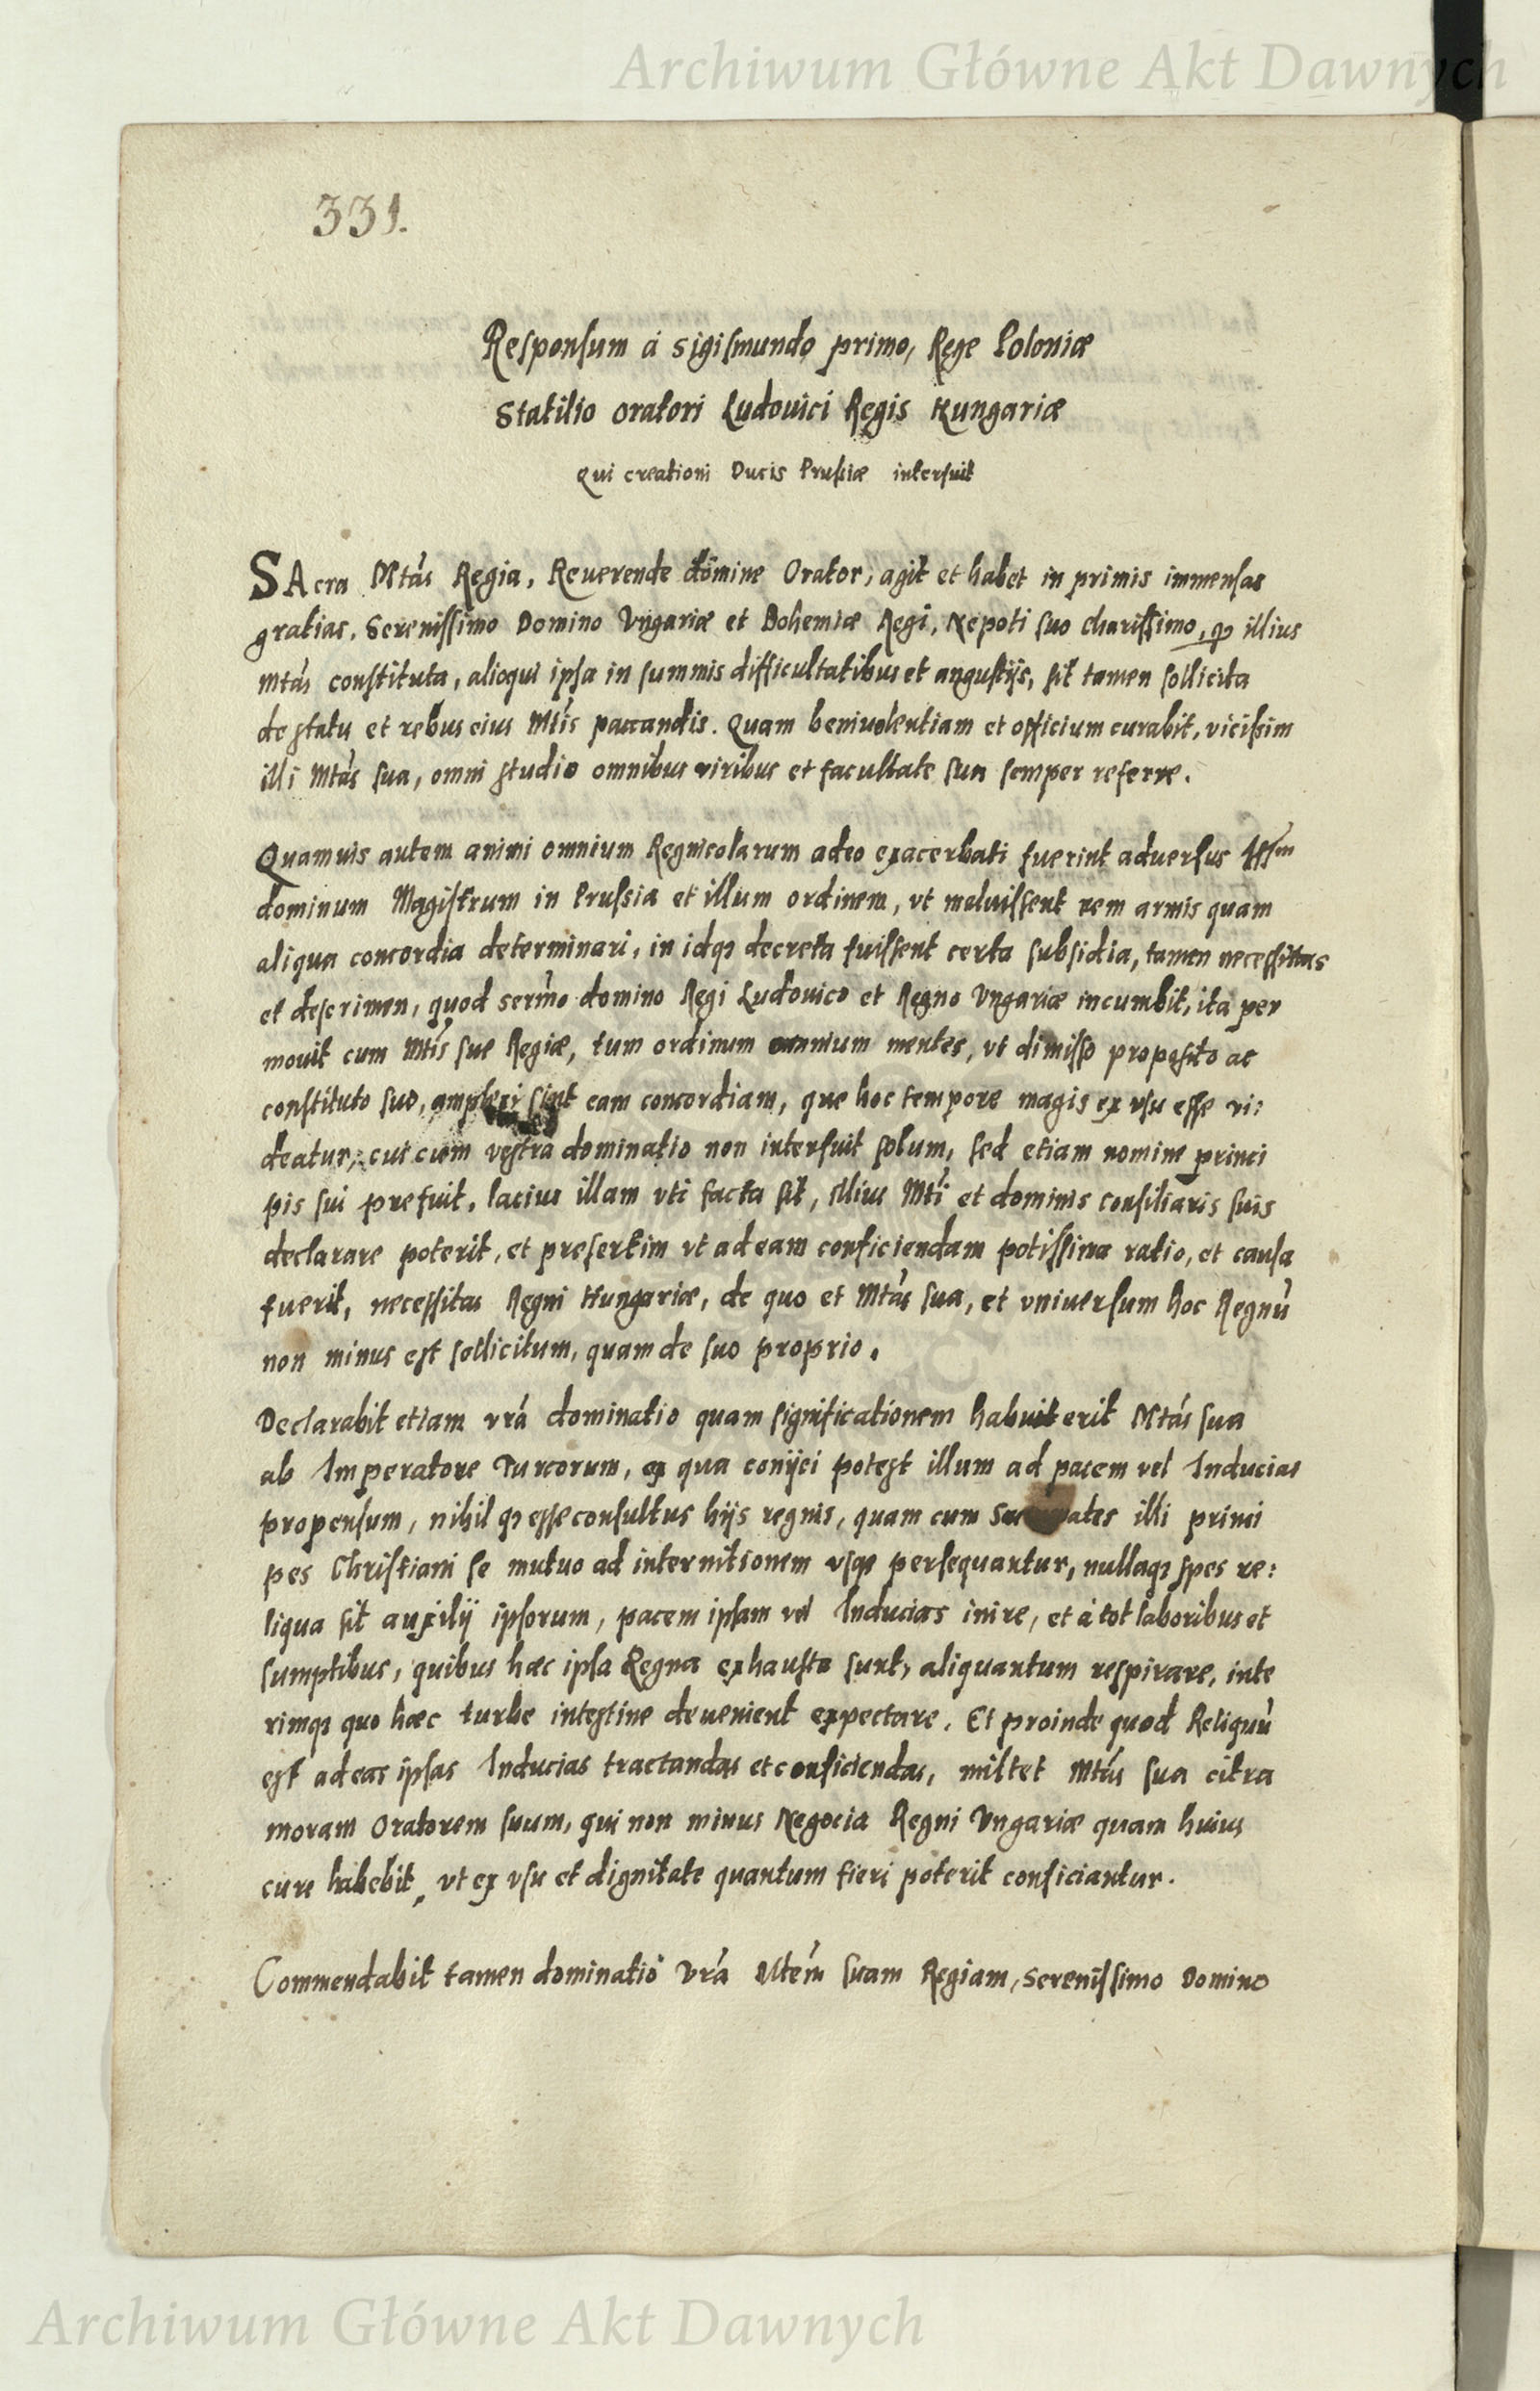 Archiwum Główne Akt Dawnych
331.
Responsum á Sigismundo primo, Rege Poloniæ
Statilio Oratori Ludouici Regis Hungariæ
Qui creationi Ducis Prussiæ interfuit
SAcra Mtás Regia, Reuerende dómine Orator, agit et habet in primis immensas
gratias, Serenissimo Domino Vngariæ et Bohemiæ Regi, Nepoti suo charissimo, illius
mtás constituta, alioqui ipsa in summis difficultatibus et angustijs, sit tamen sollicita
de statu et rebus eius Mtis paccandis. Quam beniuolentiam et officium curabit, vicissim
illi Mtás sua, omni studio omnibus viribus et facultate sua semper referre.
Quamuis autem animi omnium Regnicolarum adeo exacerbati fuerint aduersus
dominum Magistrum in Prussia et illum ordinem, vt maluissent rem armis quam
aliqua concordia determinari, in idq3 decreta fuissent certa subsidia, tamen necessitas
et descrimen, quod sermo domino Regi Ludouico et Regno Vngariæ incumbit, ita per
mouit cum Mtis sue Regiæ, tum ordinum omnium mentes, vt dimisso proposito ac
constituto suo, amplexi sint eam concordiam, que hoc tempore magis ex vsu esse vi:
deatur, cui cum vestra dominatio non interfuit solum, sed etiam nomine princi
pis sui prefuit, lacius illam vti facta sit, illius Mti et dominis consiliaris suis
declarare poterit, et presertim vt ad eam conficiendam potissima ratio, et causa
fuerit, necessitas Regni Hungariæ, de quo et Mtás sua, et vniuersum hoc Regnú
non minus est sollicitum, quam de suo proprio.
Declarabit etiam vrá dominatio quam significationem habuit erit Mtás sua
ab Imperatore Turcorum, ex qua conijci potest illum ad pacem vel Inducias
propensum, nihil q3 esse consultus hijs regnis, quam cum illi princi
pes Christiani se mutuo ad internitionem vsq3 persequantur, nullaq3 spes re:
liqua sit auxilij ipsorum, pacem ipsam vel Inducias inire, et á tot laboribus et
sumptibus, quibus hæc ipsa Regna exhausta sunt, aliquantum respirare, inte
rimq3 quo hæc turbe intestine deuenient expectare. Et proinde quod Reliquú
est ad eas ipsas Inducias tractandas et conficiendas, mittet Mtás sua citra
moram Oratorem suum, qui non minus Negocia Regni Vngariæ quam huius
cure habebit, vt ex vsu et dignitate quantum fieri poterit conficiantur.
Commendabit tamen dominatio Vrá Mtém suam Regiam, Serenissimo Domino
Archiwum Główne Akt Dawnych